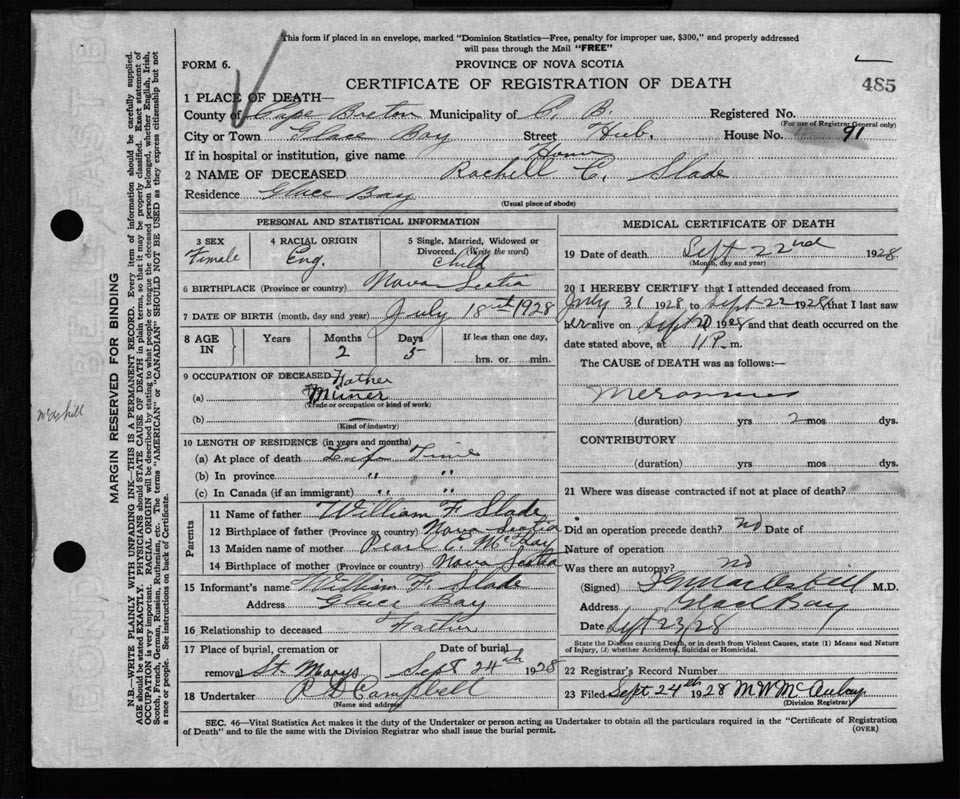 This form if placed in an envelope, marked "Dominion Statistics—Free, penalty for improper use, $300," and properly addressed
will pass through the Mail "FREE"
FORM 6.
PROVINCE OF NOVA SCOTIA
CERTIFICATE OF REGISTRATION OF DEATH
485
1 PLACE OF DEATH—
County of Cape Breton Municipality of C. B. Registered No.
(For use of Registrar General only)
City or Town Glace Bay Street Hub. House No. 91
If in hospital or institution, give name Home
2 NAME OF DECEASED Rachell C. Slade
Residence Glace Bay
(Usual place of abode)
PERSONAL AND STATISTICAL INFORMATION
3 SEX Female
4 RACIAL ORIGIN Eng.
5 Single, Married, Widowed or Divorced. (Write the word) Child
6 BIRTHPLACE (Province or country) Nova Scotia
7 DATE OF BIRTH (month, day and year) July 18th 1928
8 AGE IN Years Months 2 Days 5 If less than one day, hrs. or min.
9 OCCUPATION OF DECEASED Father
(a) Miner
(Trade or occupation or kind of work)
(b)
(Kind of industry)
10 LENGTH OF RESIDENCE (in years and months)
(a) At place of death Life Time
(b) In province " "
(c) In Canada (if an immigrant) " "
Parents
11 Name of father William F. Slade
12 Birthplace of father (Province or country) Nova Scotia
13 Maiden name of mother Pearl C. McKay
14 Birthplace of mother (Province or country) Nova Scotia
15 Informant's name William F. Slade
Address Glace Bay
16 Relationship to deceased Father
17 Place of burial, cremation or removal St. Marys Date of burial Sept 24th 1928
18 Undertaker Campbell
(Name and address)
MEDICAL CERTIFICATE OF DEATH
19 Date of death Sept 22nd 1928
(Month, day and year)
20 I HEREBY CERTIFY that I attended deceased from
July 31 1928 to Sept 22 1928 that I last saw
her alive on Sept 20 1928 and that death occurred on the
date stated above, at 11 P. m.
The CAUSE of DEATH was as follows:—
(duration) yrs 2 mos dys.
CONTRIBUTORY
(duration) yrs mos dys.
21 Where was disease contracted if not at place of death?
Did an operation precede death? no Date of
Nature of operation
Was there an autopsy? no
(Signed) M.D.
Address Glace Bay
Date Sept 23/28
State the Disease causing Death, or in death from Violent Causes, state (1) Means and Nature
of Injury, (2) whether Accidental, Suicidal or Homicidal.
22 Registrar's Record Number
23 Filed Sept 24th 1928 M W McAulay
(Division Registrar)
SEC. 46—Vital Statistics Act makes it the duty of the Undertaker or person acting as Undertaker to obtain all the particulars required in the "Certificate of Registration
of Death" and to file the same with the Division Registrar who shall issue the burial permit.
(OVER)
MARGIN RESERVED FOR BINDING
N.B.—WRITE PLAINLY WITH UNFADING INK—THIS IS A PERMANENT RECORD. Every item of information should be carefully supplied.
AGE should be stated EXACTLY. PHYSICIANS should STATE CAUSE OF DEATH in plain terms, so that it may be properly classified. Exact statement of
OCCUPATION is very important. RACIAL ORIGIN will be described by stating to what people or tongue the deceased person belonged, whether English, Irish,
Scotch, French, German, Russian, Ruthenian, etc. The terms "AMERICAN" or "CANADIAN" SHOULD NOT BE USED as they express citizenship but not
a race or people. See instructions on back of Certificate.